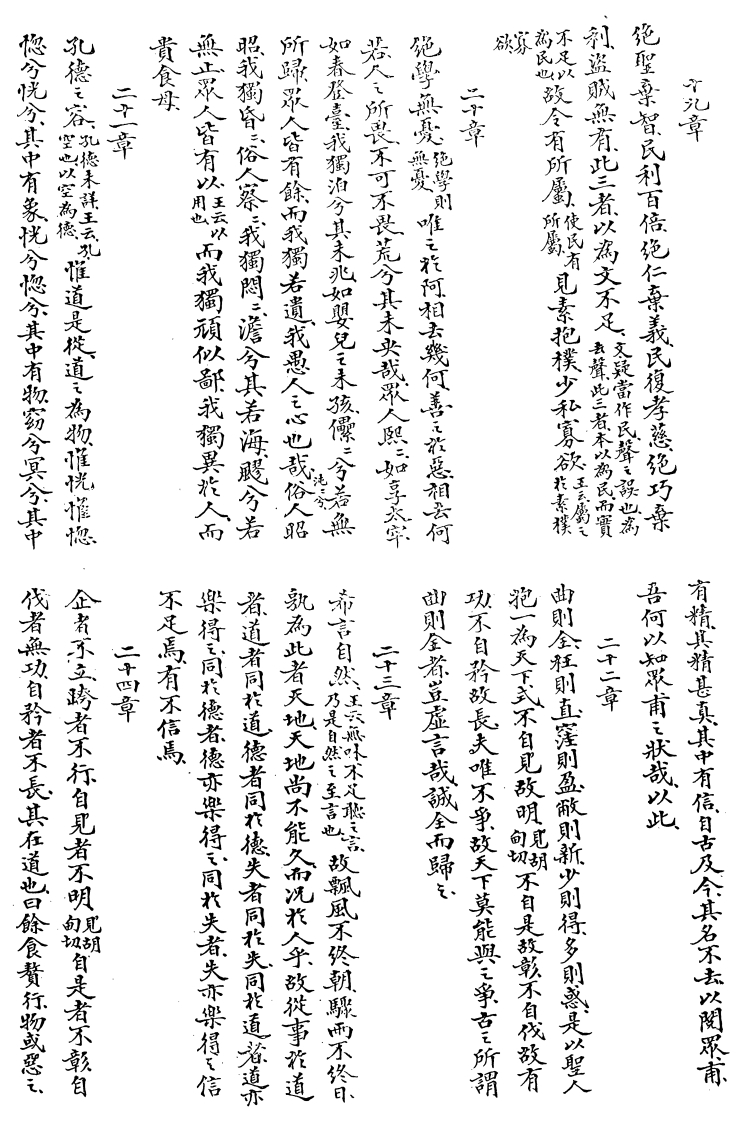 十九章
絕聖棄智、民利百倍、絕仁棄義、民復孝慈、絕巧棄
利、盜賊無有、此三者、以為文不足、文疑當作民聲之誤也為去聲、此三者本以為民而實
不足以為民也、故令有所屬、使民有所屬、見素抱樸、少私寡欲、王云屬之於素樸
寡欲
二十章
絕學無憂、絕學則無憂唯之於阿、相去幾何、善之於惡、相去何
若、人之所畏、不可不畏、荒兮其未央哉、眾人熙二、如享太牢、
如春登臺、我獨泊兮其未兆、如嬰兒之未孩、儽二兮若無
所歸、眾人皆有餘、而我獨若遺、我愚人之心也哉、沌二兮俗人昭
昭、我獨昏二、俗人察二、我獨悶二、澹兮其若海、飂兮若
無止、眾人皆有以、王云以用也而我獨頑似鄙、我獨異於人、而
貴食母、
二十一章
孔德之容、孔德未詳王云孔空也以空為德惟道是從、道之為物、惟恍惟惚、
惚兮恍兮、其中有象、恍兮惚兮、其中有物、窈兮冥兮、其中
有精、其精甚真、其中有信、自古及今、其名不去、以閱眾甫、
吾何以知眾甫之狀哉、以此、
二十二章
曲則全、枉則直、窪則盈、敝則新、少則得、多則惑、是以聖人
抱一為天下式、不自見故明、見胡甸切不自是故彰、不自伐故有
功、不自矜故長、夫唯不爭、故天下莫能與之爭、古之所謂
曲則全者、豈虛言哉、誠全而歸之、
二十三章
希言自然、王云無味不足聽之言、乃是自然之至言也、故飄風不終朝、驟雨不終日、
孰為此者天地、天地尚不能久、而況於人乎、故從事於道
者、道者同於道、德者同於德、失者同於失、同於道者、道亦
樂得之、同於德者、德亦樂得之、同於失者、失亦樂得之、信
不足焉、有不信焉、
二十四章
企者不立、跨者不行、自見者不明、見胡甸切自是者不彰、自
伐者無功、自矜者不長、其在道也、曰餘食贅行、物或惡之、